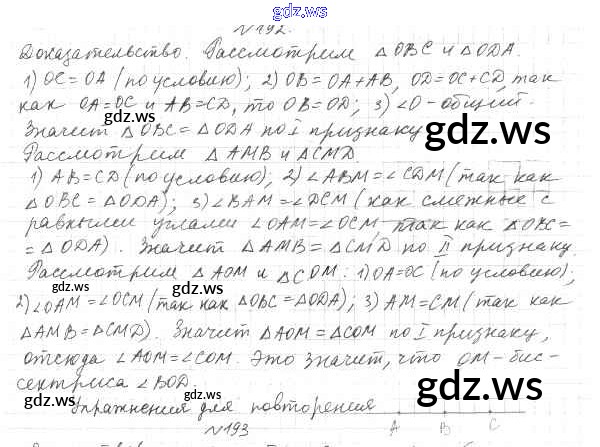 gdz.ws
№192.
Доказательство. Рассмотрим △OBC и △ODA.
1) OC=OA (по условию); 2) OB=OA+AB, OD=OC+CD, так
как OA=OC и AB=CD, то OB=OD; 3) ∠O-общий.
Значит △OBC=△ODA по I признаку
Рассмотрим △AMB и △CMD.
1) AB=CD (по условию); 2) ∠ABM=∠CDM (так как
△OBC=△ODA); 3) ∠BAM=∠DCM (как смежные с
равными углами ∠OAM=∠OCM, так как △OBC=
=△ODA). Значит △AMB=△CMD по II признаку.
Рассмотрим △AOM и △COM. 1) OA=OC (по условию);
2) ∠OAM=∠OCM (так как △OBC=△ODA); 3) AM=CM (так как
△AMB=△CMD). Значит △AOM=△COM по I признаку,
отсюда ∠AOM=∠COM. Это значит, что OM-бис-
сектриса ∠BOD.
Упражнения для повторения
№193
A B C
gdz.ws
gdz.ws
gdz.ws
gdz.ws
gdz.ws